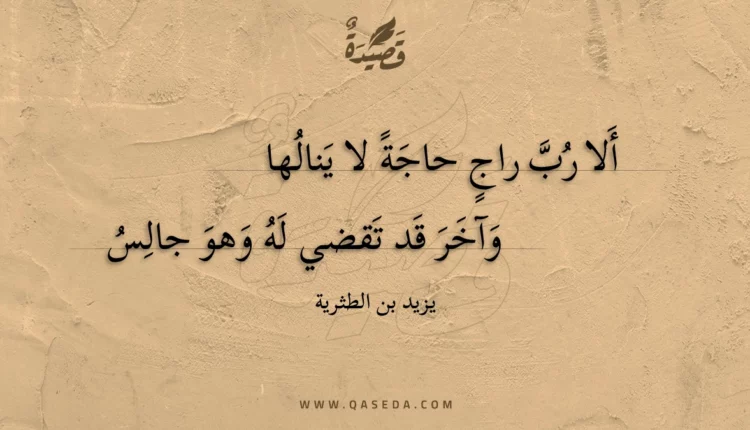 قَصِيدَةٌ
أَلا رُبَّ راجٍ حاجَةً لا يَنالُها
وَآخَرَ قَد تَقضي لَهُ وَهوَ جالِسُ
يزيد بن الطثرية
WWW.QASEDA.COM